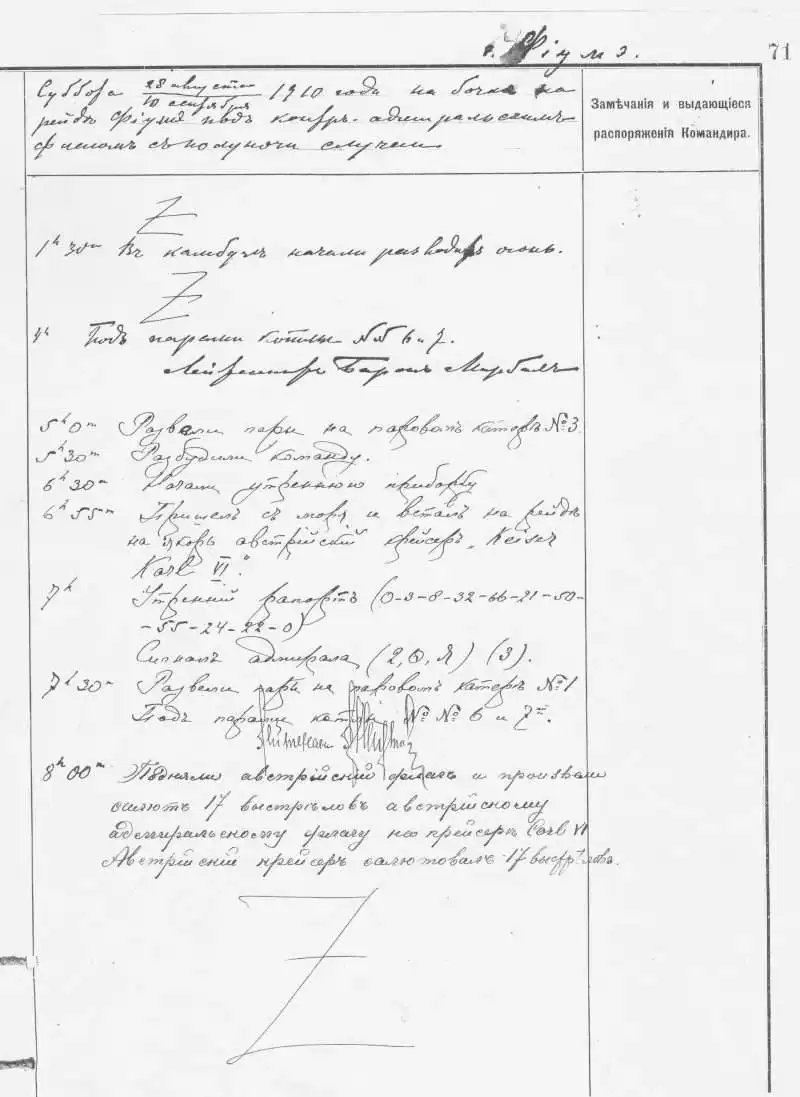 г. Фіумэ.
71
Суббота 28 августа / 10 сентября 1910 года на бочке на
рейдѣ Фіумэ подъ контръ-адмиральскимъ
флагомъ съ полуночи случаи
Замѣчанія и выдающіеся
распоряженія Командира.
Z
1h 30m Въ камбузѣ начали разводить огонь.
Z
4h Подъ парами котлы №№ 6 и 7.
Лейтенантъ Баронъ
5h 0m Развели пары на паровомъ катерѣ № 3
5h 30m Разбудили команду.
6h 30m Начали утреннюю приборку
6h 55m Пришелъ съ моря и всталъ на рейдѣ
на якорь австрійскій крейсеръ „Keiser
Karl VI".
7h Утренній рапортъ (0-3-8-32-66-21-50-
-55-24-22-0)
Сигналъ адмирала (2, Ѳ, Я) (3).
7h 30m Развели пары на паровомъ катерѣ № 1
Подъ парами котлы № № 6 и 7.
8h 00m Подняли австрійскій флагъ и произвели
салютъ 17 выстрѣловъ австрійскому
адмиральскому флагу на крейсерѣ Carl VI
Австрійскій крейсеръ салютовалъ 17 выстрѣлов.
Z